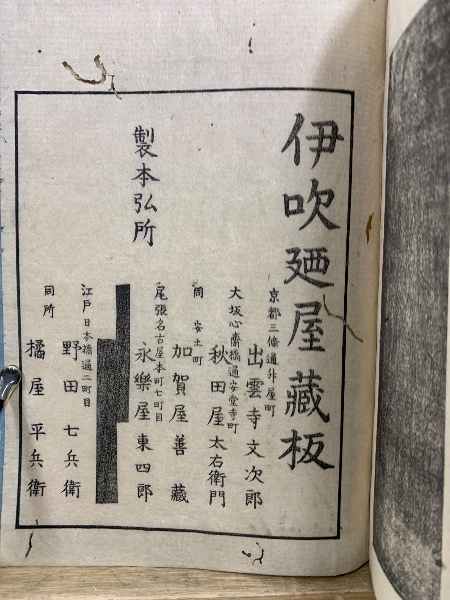 伊吹廼屋藏板
製本弘所
京都三條通升屋町
出雲寺文次郎
大坂心齋橋通安堂寺町
秋田屋太右衛門
同 安土町
加賀屋善藏
尾張名古屋本町七町目
永樂屋東四郎
江戸日本橋通二町目
野田七兵衛
同所
橘屋平兵衛